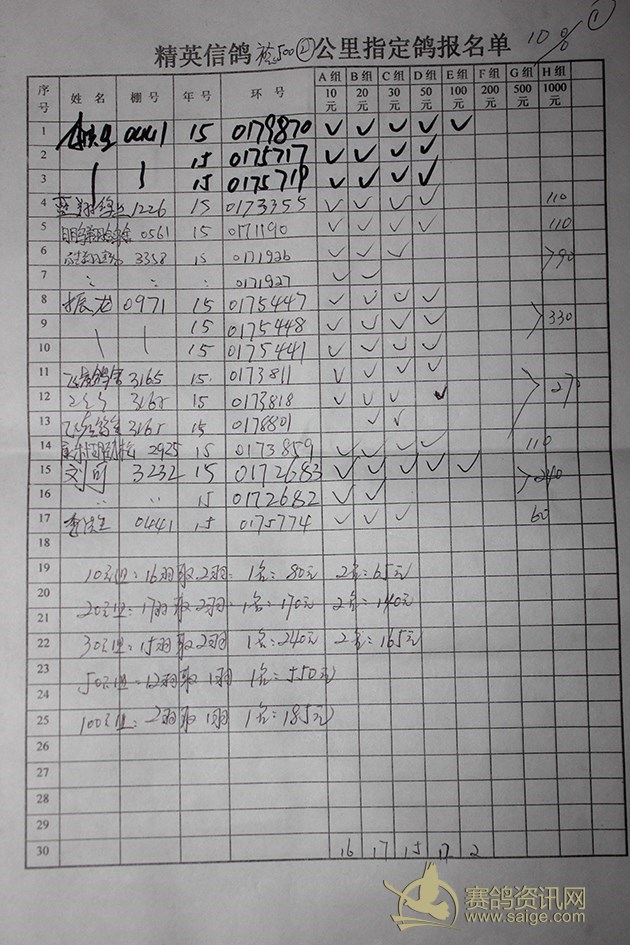 ①
10%
精英信鸽 500② 公里指定鸽报名单
序号 姓名 棚号 年号 环号 A组10元 B组20元 C组30元 D组50元 E组100元 F组200元 G组500元 H组1000元
1 0441 15 0179870 ✓ ✓ ✓ ✓ ✓
2 15 0175717 ✓ ✓ ✓ ✓
3 15 0175719 ✓ ✓ ✓ ✓
4 1226 15 0173355 ✓ ✓ ✓ ✓ 110
5 0561 15 0171190 ✓ ✓ ✓ ✓ 110
6 3358 15 0171926 ✓ ✓ ✓ 90
7 0171927 ✓ ✓
8 振龙 0971 15 0175447 ✓ ✓ ✓ ✓
9 15 0175448 ✓ ✓ ✓ ✓ 330
10 15 0175441 ✓ ✓ ✓ ✓
11 3165 15 0173811 ✓ ✓ ✓ ✓
12 3165 15 0173818 ✓ ✓ ✓ ✓ 270
13 3165 15 0178801 ✓ ✓
14 2925 15 0173859 ✓ ✓ ✓ ✓ 110
15 刘可 3232 15 0172683 ✓ ✓ ✓ ✓ ✓ 240
16 15 0172682 ✓ ✓
17 0441 15 0175774 ✓ ✓ ✓ 60
18
19 10元组：16羽取2羽：1名：80元 2名：65元
20
21 20元组：17羽取2羽：1名：170元 2名：140元
22 30元组：15羽取2羽 1名：240元 2名：165元
23 50元组：12羽取1羽 1名：550元
24
25 100元组：2羽取1羽 1名：185元
26
27
28
29
30 16 17 15 12 2
赛鸽资讯网
www.saige.com